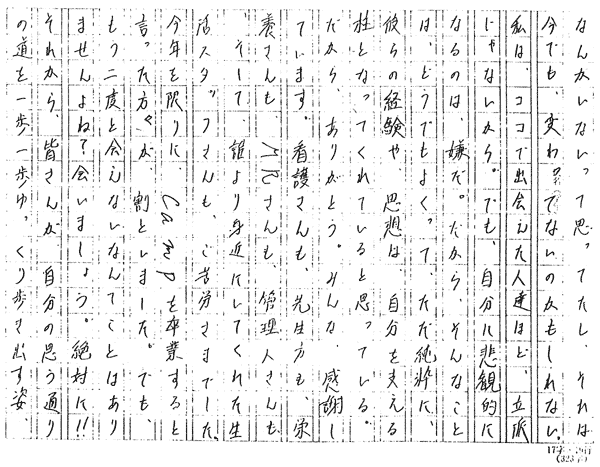 なんかいない。って思ってたし、それは
今でも、変わってないのかもしれない。
私は、ココで出会えた人達ほど、立派
じゃないから。でも、自分に悲観的に
なるのは、嫌だ。だから、そんなこと
は、どうでもよくって、ただ純粋に、
彼らの経験や、思想は、自分を支える
柱となってくれていると思っている。
だから、ありがとう。みんな、感謝し
ています。看護さんも、先生方も、栄
養さんも、MRさんも、管理人さんも
そして、誰より身近にいてくれた生
活スタッフさんも、ご苦労さまでした。
今年を限りに、Campを卒業すると
言った方々が、割といました。でも、
もう二度と会えないなんてことはあり
ませんよね？会いましょう。絶対に!!
それから、皆さんが、自分の思う通り
の道を一歩一歩ゆっくり歩き出す姿、
17字×19行
(323字)